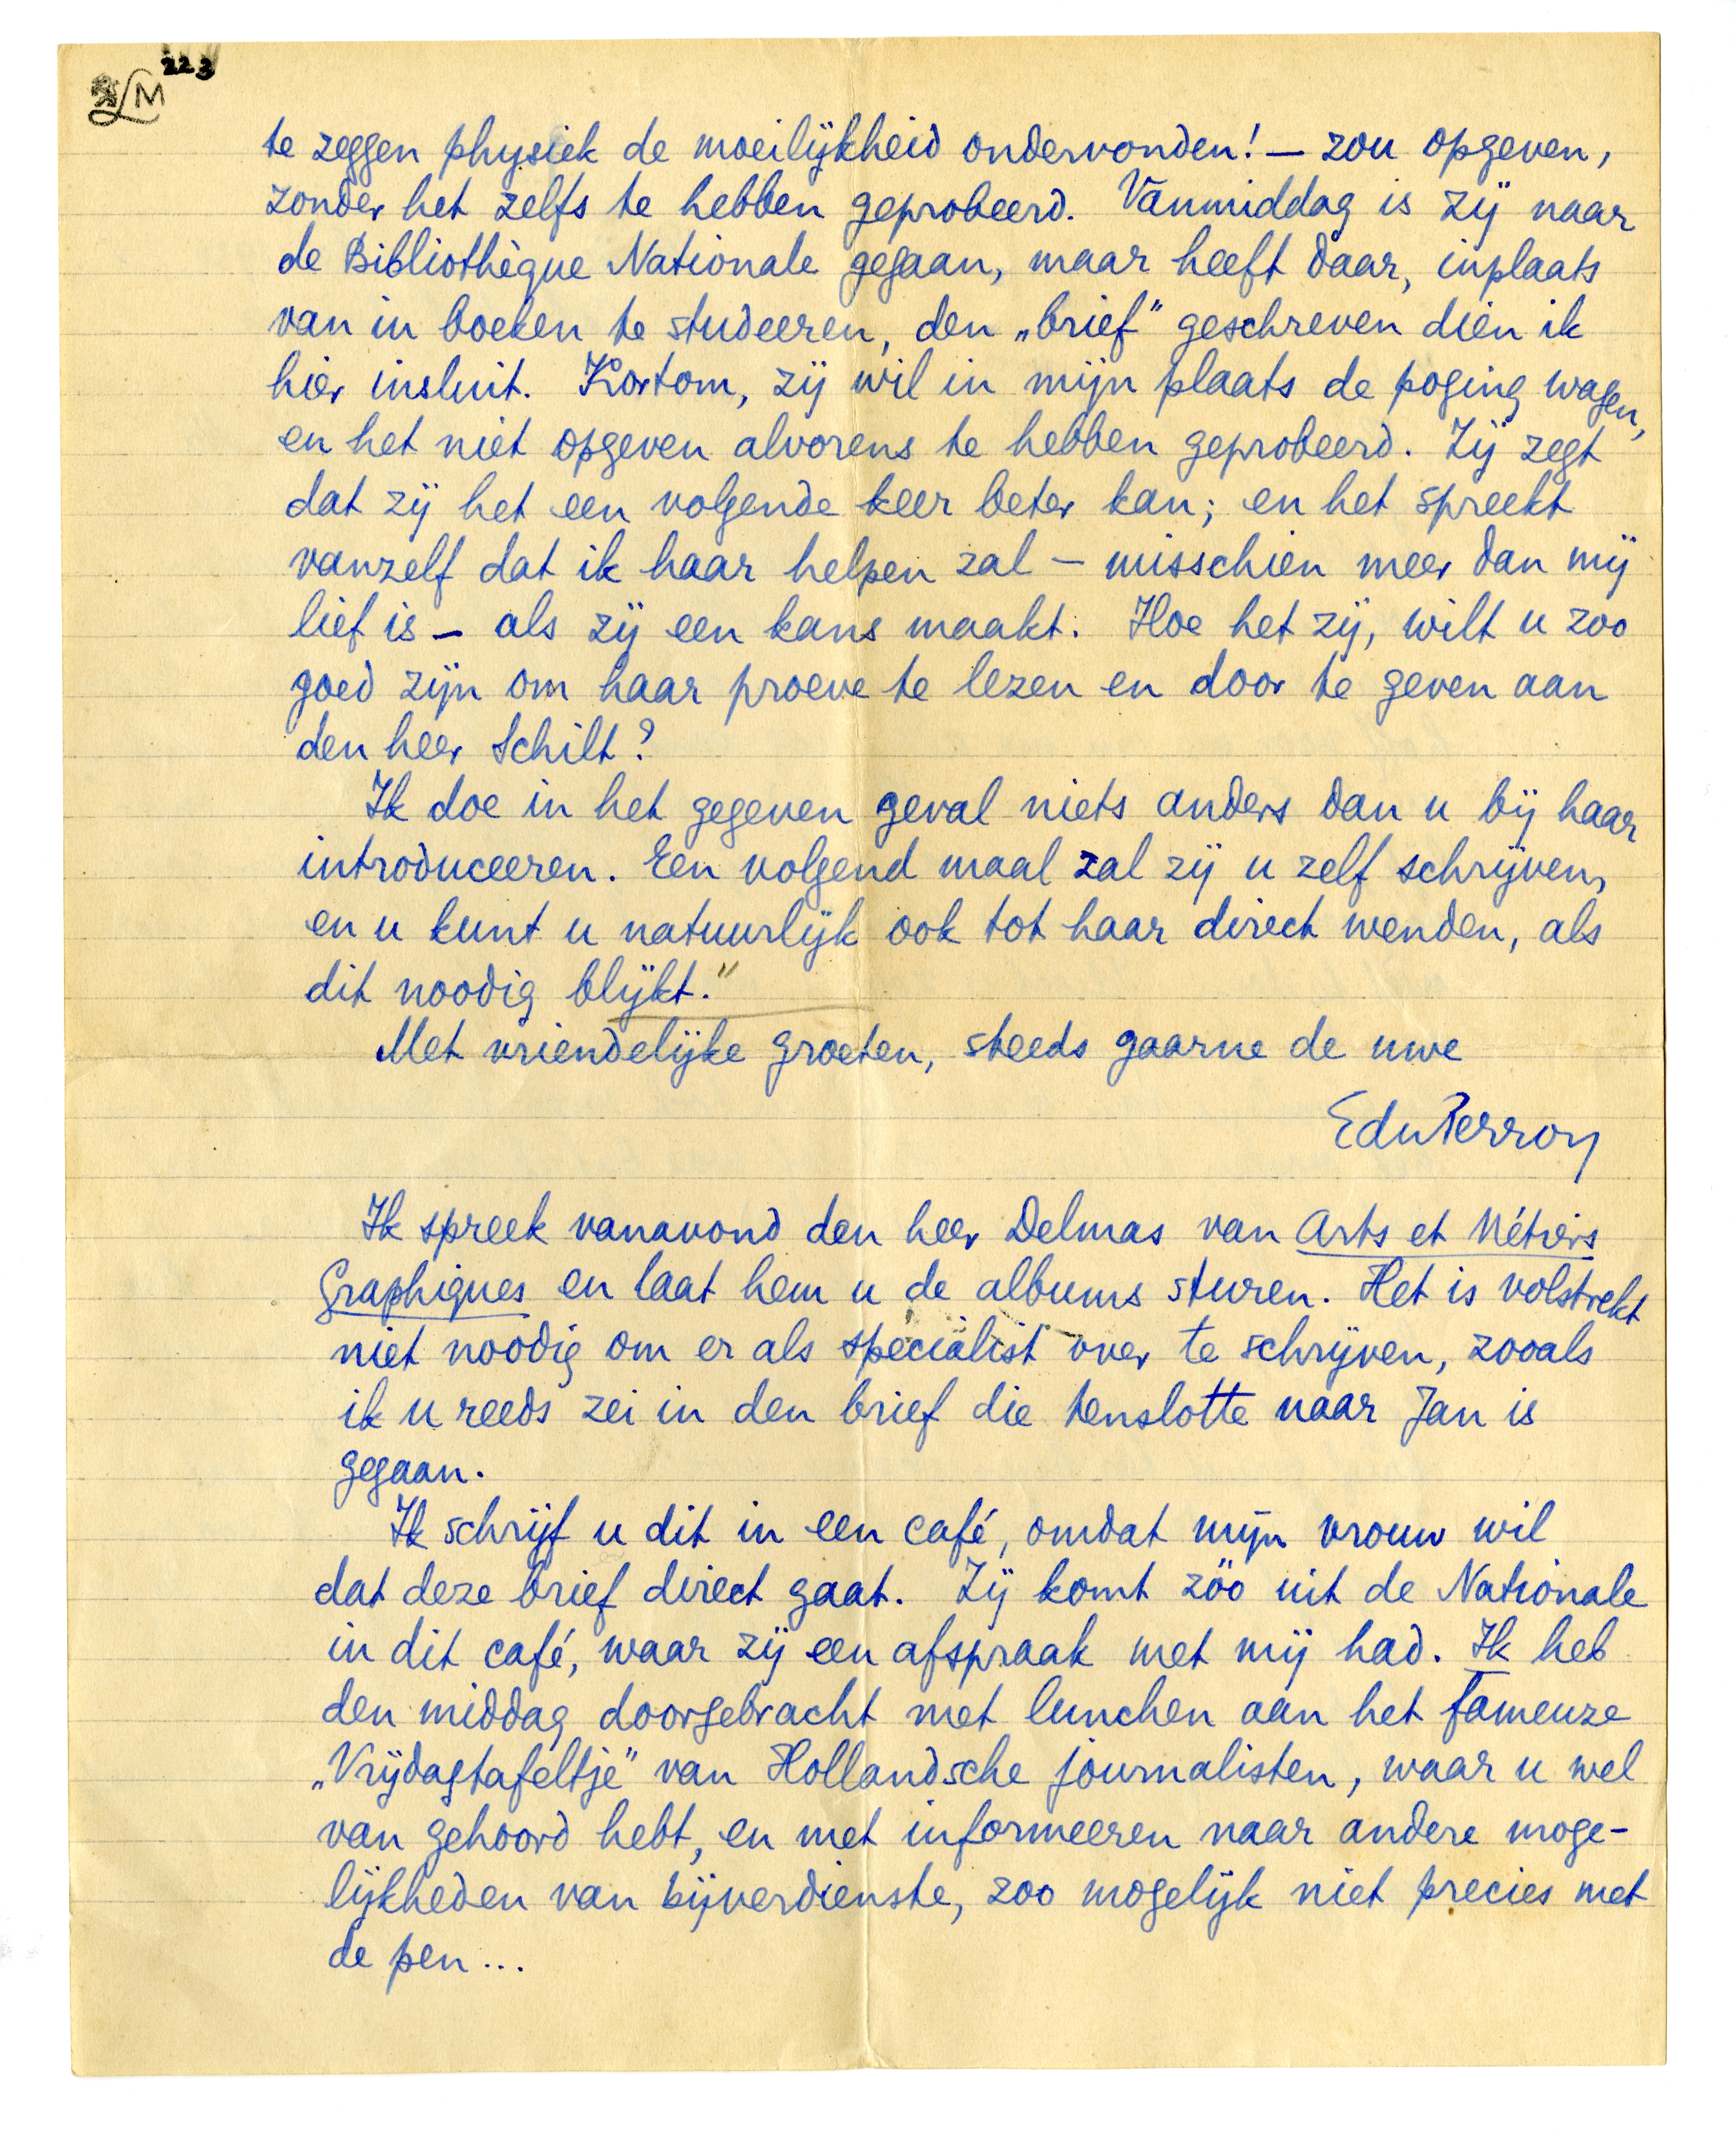 223
LM
te zeggen physiek de moeilijkheid ondervonden! — zou opgeven,
zonder het zelfs te hebben geprobeerd. Vanmiddag is zij naar
de Bibliothèque Nationale gegaan, maar heeft daar, inplaats
van in boeken te studeeren, den „brief” geschreven dien ik
hier insluit. Kortom, zij wil in mijn plaats de poging wagen,
en het niet opgeven alvorens te hebben geprobeerd. Zij zegt
dat zij het een volgende keer beter kan; en het spreekt
vanzelf dat ik haar helpen zal — misschien meer dan mij
lief is — als zij een kans maakt. Hoe het zij, wilt u zoo
goed zijn om haar proeve te lezen en door te geven aan
den heer Schilt?
Ik doe in het gegeven geval niets anders dan u bij haar
introduceeren. Een volgend maal zal zij u zelf schrijven,
en u kunt u natuurlijk ook tot haar direct wenden, als
dit noodig blijkt.”
Met vriendelijke groeten, steeds gaarne de uwe
EduPerron
Ik spreek vanavond den heer Delmas van Arts et Métiers
Graphiques en laat hem u de albums sturen. Het is volstrekt
niet noodig om er als specialist over te schrijven, zooals
ik u reeds zei in den brief die tenslotte naar Jan is
gegaan.
Ik schrijf u dit in een café, omdat mijn vrouw wil
dat deze brief direct gaat. Zij komt zóó uit de Nationale
in dit café, waar zij een afspraak met mij had. Ik heb
den middag doorgebracht met lunchen aan het fameuze
„Vrijdagtafeltje” van Hollandsche journalisten, waar u wel
van gehoord hebt, en met informeeren naar andere moge-
lijkheden van bijverdienste, zoo mogelijk niet precies met
de pen...